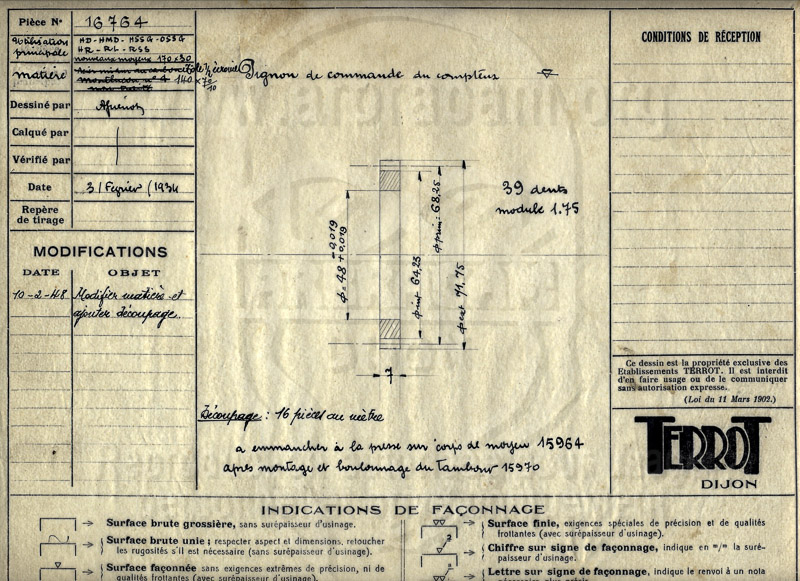 Pièce N° 16764
Utilisation principale HD-HMD-HSSG-OSSG
HR-RL-RSS
nouveaux moyeux 170x30
matière
Tôle 1/2 écrouie
140 x 70/10
Dessiné par
Calqué par
Vérifié par
Date 31 Fevrier 1934
Repère de tirage
MODIFICATIONS
DATE OBJET
10-2-48 Modifier matière et
ajouter découpage.
Pignon de commande du compteur
39 dents
module 1.75
ϕ = 48 -0,019 +0,019
ϕ int 64,25
ϕ prim: 68,25
ϕ ext 71,75
7
Découpage : 16 pièces au mètre
a emmancher à la presse sur corps de moyeu 15964
après montage et boulonnage du tambour 15970
CONDITIONS DE RÉCEPTION
Ce dessin est la propriété exclusive des
Etablissements TERROT. Il est interdit
d'en faire usage ou de le communiquer
sans autorisation expresse.
(Loi du 11 Mars 1902.)
TERROT
DIJON
INDICATIONS DE FAÇONNAGE
Surface brute grossière, sans surépaisseur d'usinage.
Surface brute unie ; respecter aspect et dimensions, retoucher
les rugosités s'il est nécessaire (sans surépaisseur d'usinage).
Surface façonnée sans exigences extrêmes de précision, ni de
qualités frottantes (avec surépaisseur d'usinage).
Surface finie, exigences spéciales de précision et de qualités
frottantes (avec surépaisseur d'usinage).
2
Chiffre sur signe de façonnage, indique en m/m la suré-
paisseur d'usinage.
a
Lettre sur signe de façonnage, indique le renvoi à un nota